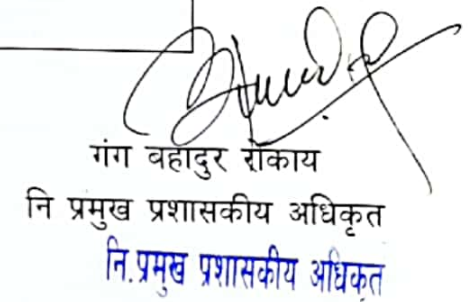 गंग वहादुर रोकाय
नि प्रमुख प्रशासकीय अधिकृत
नि.प्रमुख प्रशासकीय अधिकृत